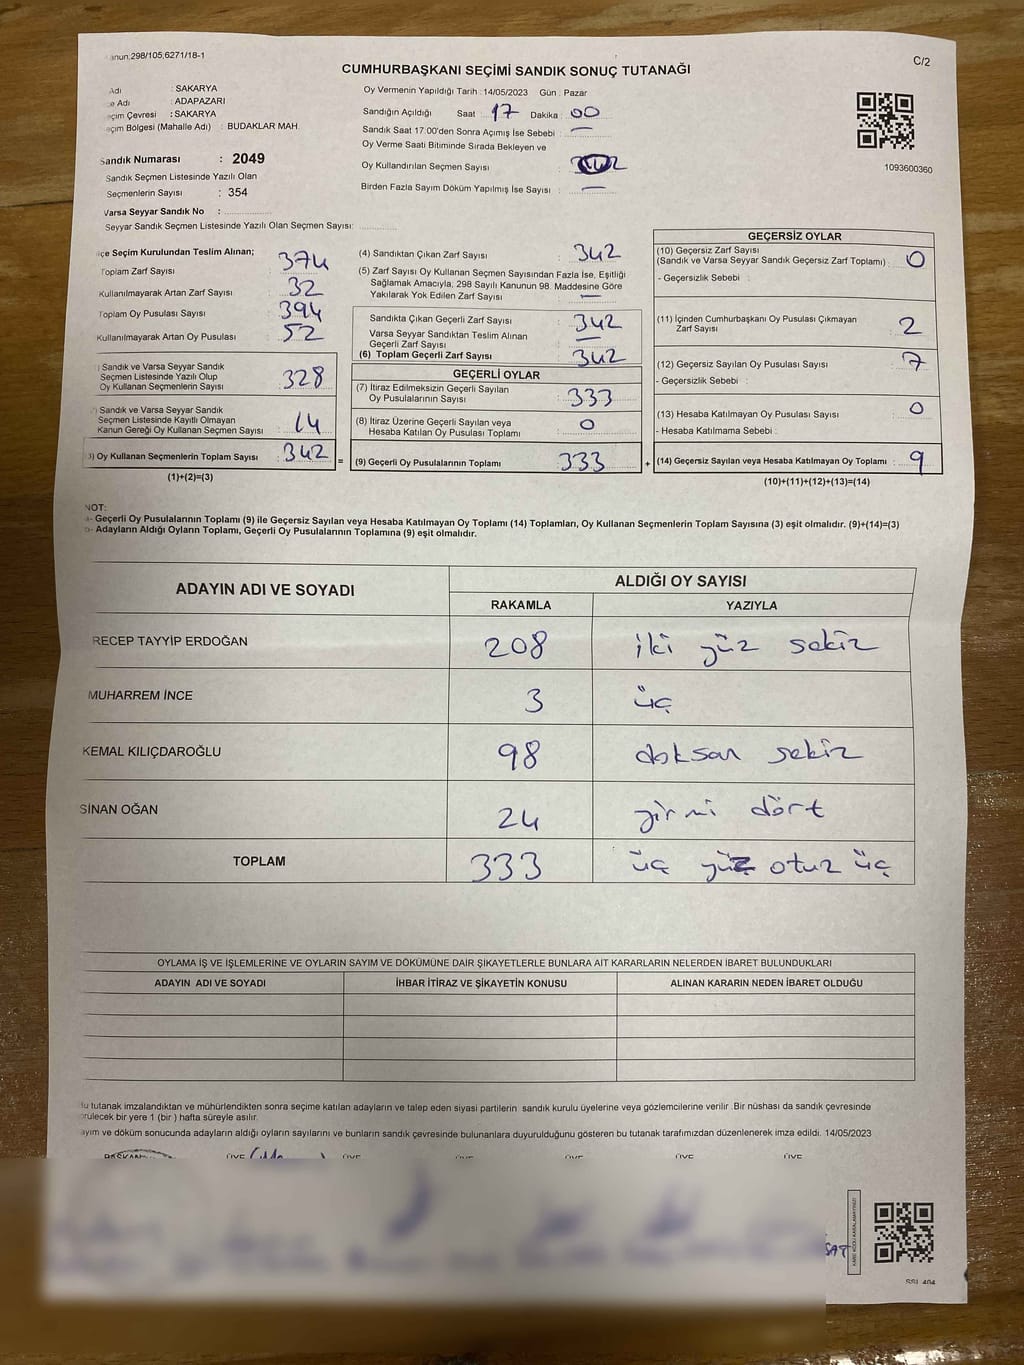 anun;298/105;6271/18-1
C/2
CUMHURBAŞKANI SEÇİMİ SANDIK SONUÇ TUTANAĞI
Adı : SAKARYA
e Adı : ADAPAZARI
eçim Çevresi : SAKARYA
eçim Bölgesi (Mahalle Adı) : BUDAKLAR MAH.
Sandık Numarası : 2049
Sandık Seçmen Listesinde Yazılı Olan
Seçmenlerin Sayısı : 354
Varsa Seyyar Sandık No :
Seyyar Sandık Seçmen Listesinde Yazılı Olan Seçmen Sayısı:
Oy Vermenin Yapıldığı Tarih :14/05/2023 Gün : Pazar
Sandığın Açıldığı Saat : 17 Dakika : 00
Sandık Saat 17:00'den Sonra Açımış İse Sebebi : —
Oy Verme Saati Bitiminde Sırada Bekleyen ve
Oy Kullandırılan Seçmen Sayısı :
Birden Fazla Sayım Döküm Yapılmış İse Sayısı : —
1093600360
lçe Seçim Kurulundan Teslim Alınan;
Toplam Zarf Sayısı : 374
Kullanılmayarak Artan Zarf Sayısı : 32
Toplam Oy Pusulası Sayısı : 394
Kullanılmayarak Artan Oy Pusulası : 52
) Sandık ve Varsa Seyyar Sandık
Seçmen Listesinde Yazılı Olup
Oy Kullanan Seçmenlerin Sayısı : 328
) Sandık ve Varsa Seyyar Sandık
Seçmen Listesinde Kayıtlı Olmayan
Kanun Gereği Oy Kullanan Seçmen Sayısı : 14
3) Oy Kullanan Seçmenlerin Toplam Sayısı : 342
(1)+(2)=(3)
(4) Sandıktan Çıkan Zarf Sayısı : 342
(5) Zarf Sayısı Oy Kullanan Seçmen Sayısından Fazla İse, Eşitliği
Sağlamak Amacıyla, 298 Sayılı Kanunun 98. Maddesine Göre
Yakılarak Yok Edilen Zarf Sayısı : —
Sandıkta Çıkan Geçerli Zarf Sayısı : 342
Varsa Seyyar Sandıktan Teslim Alınan
Geçerli Zarf Sayısı : —
(6) Toplam Geçerli Zarf Sayısı : 342
GEÇERLİ OYLAR
(7) İtiraz Edilmeksizin Geçerli Sayılan
Oy Pusulalarının Sayısı : 333
(8) İtiraz Üzerine Geçerli Sayılan veya
Hesaba Katılan Oy Pusulası Toplamı : 0
= (9) Geçerli Oy Pusulalarının Toplamı : 333
GEÇERSİZ OYLAR
(10) Geçersiz Zarf Sayısı
(Sandık ve Varsa Seyyar Sandık Geçersiz Zarf Toplamı) : 0
- Geçersizlik Sebebi :
(11) İçinden Cumhurbaşkanı Oy Pusulası Çıkmayan
Zarf Sayısı : 2
(12) Geçersiz Sayılan Oy Pusulası Sayısı : 7
- Geçersizlik Sebebi :
(13) Hesaba Katılmayan Oy Pusulası Sayısı : 0
- Hesaba Katılmama Sebebi :
+ (14) Geçersiz Sayılan veya Hesaba Katılmayan Oy Toplamı : 9
(10)+(11)+(12)+(13)=(14)
NOT:
a- Geçerli Oy Pusulalarının Toplamı (9) ile Geçersiz Sayılan veya Hesaba Katılmayan Oy Toplamı (14) Toplamları, Oy Kullanan Seçmenlerin Toplam Sayısına (3) eşit olmalıdır. (9)+(14)=(3)
b- Adayların Aldığı Oyların Toplamı, Geçerli Oy Pusulalarının Toplamına (9) eşit olmalıdır.
ADAYIN ADI VE SOYADI ALDIĞI OY SAYISI
RAKAMLA YAZIYLA
RECEP TAYYİP ERDOĞAN 208 iki yüz sekiz
MUHARREM İNCE 3 üç
KEMAL KILIÇDAROĞLU 98 doksan sekiz
SİNAN OĞAN 24 yirmi dört
TOPLAM 333 üç yüz otuz üç
OYLAMA İŞ VE İŞLEMLERİNE VE OYLARIN SAYIM VE DÖKÜMÜNE DAİR ŞİKAYETLERLE BUNLARA AİT KARARLARIN NELERDEN İBARET BULUNDUKLARI
ADAYIN ADI VE SOYADI İHBAR İTİRAZ VE ŞİKAYETİN KONUSU ALINAN KARARIN NEDEN İBARET OLDUĞU
Bu tutanak imzalandıktan ve mühürlendikten sonra seçime katılan adayların ve talep eden siyasi partilerin sandık kurulu üyelerine veya gözlemcilerine verilir .Bir nüshası da sandık çevresinde
örülecek bir yere 1 (bir ) hafta süreyle asılır.
ayım ve döküm sonucunda adayların aldığı oyların sayılarını ve bunların sandık çevresinde bulunanlara duyurulduğunu gösteren bu tutanak tarafımızdan düzenlenerek imza edildi. 14/05/2023
BAŞKAN ÜYE ÜYE ÜYE ÜYE ÜYE ÜYE
SAT